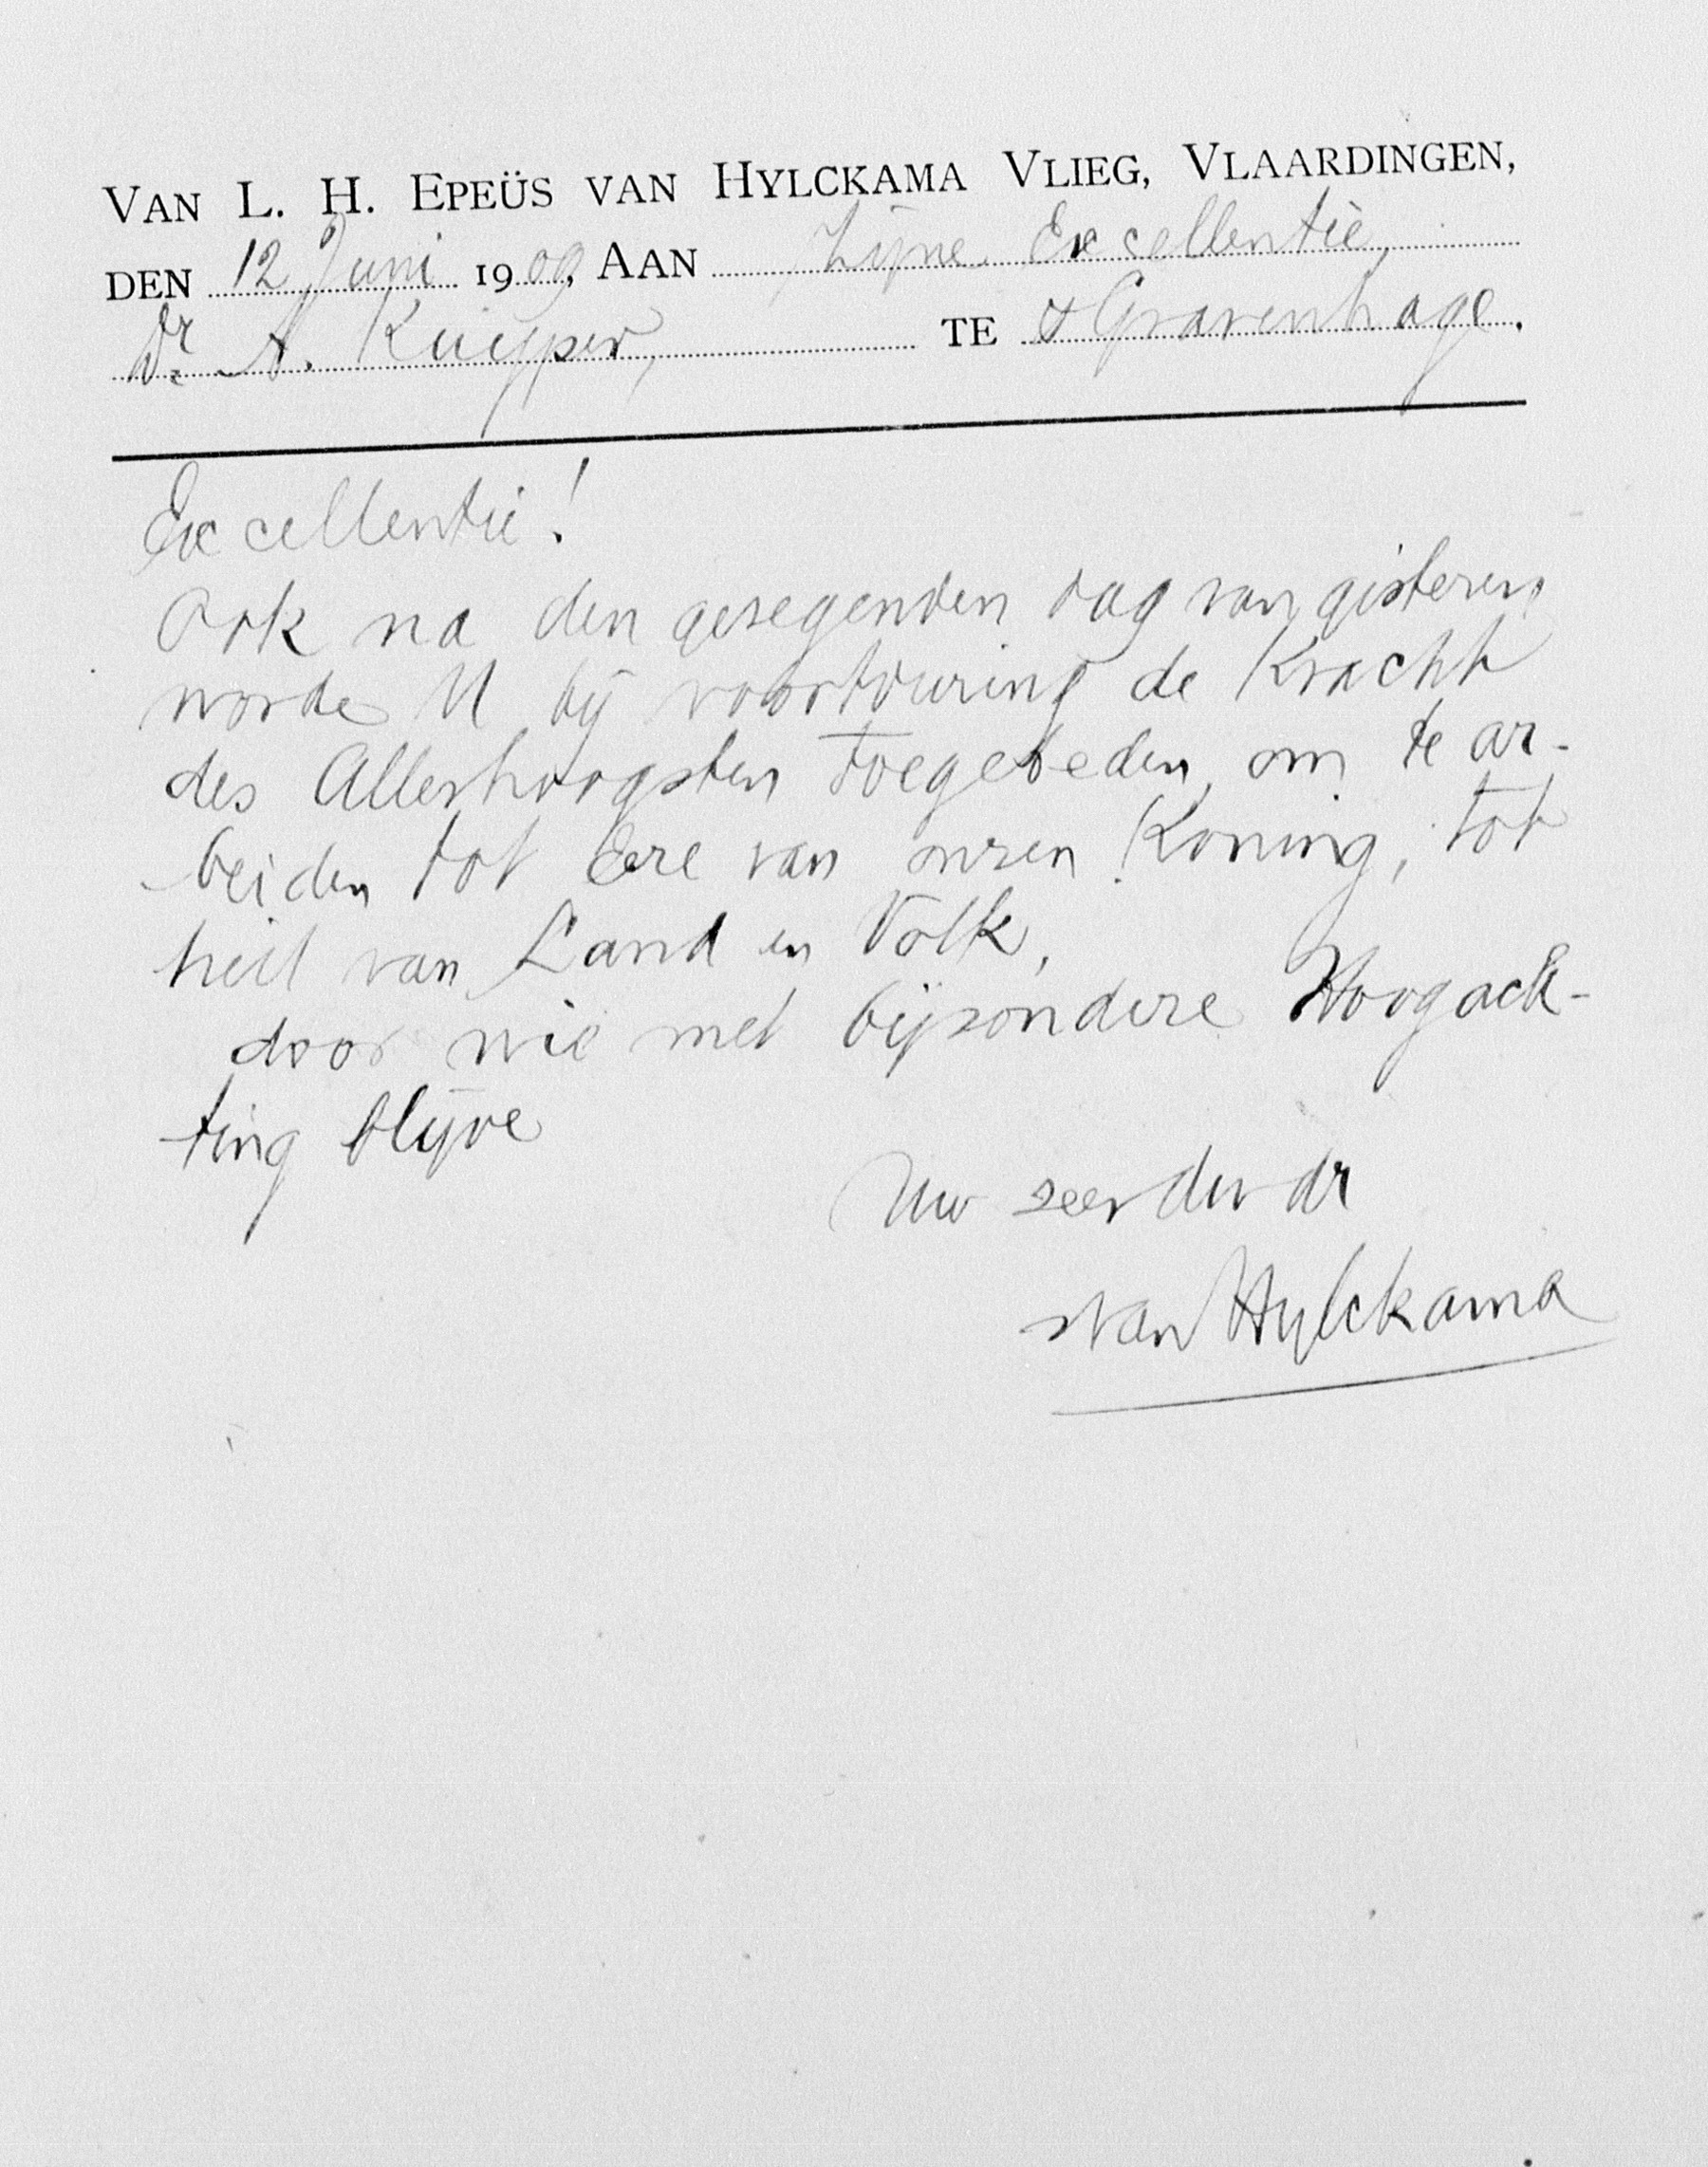 VAN L. H. EPEÜS VAN HYLCKAMA VLIEG, VLAARDINGEN,
DEN 12 Juni 1909, AAN Zijne Excellentie
Dr A. Kuijper, TE 's Gravenhage.
Excellentie!
Ook na den gezegenden dag van gisteren
worde U bij voortduring de Kracht
des Allerhoogsten toegebeden, om te ar-
beiden tot Eere van onzen Koning, tot
heil van Land en Volk,
door wie met bijzondere Hoogach-
ting blijve
Uw zeer dw dr
van Hylckama